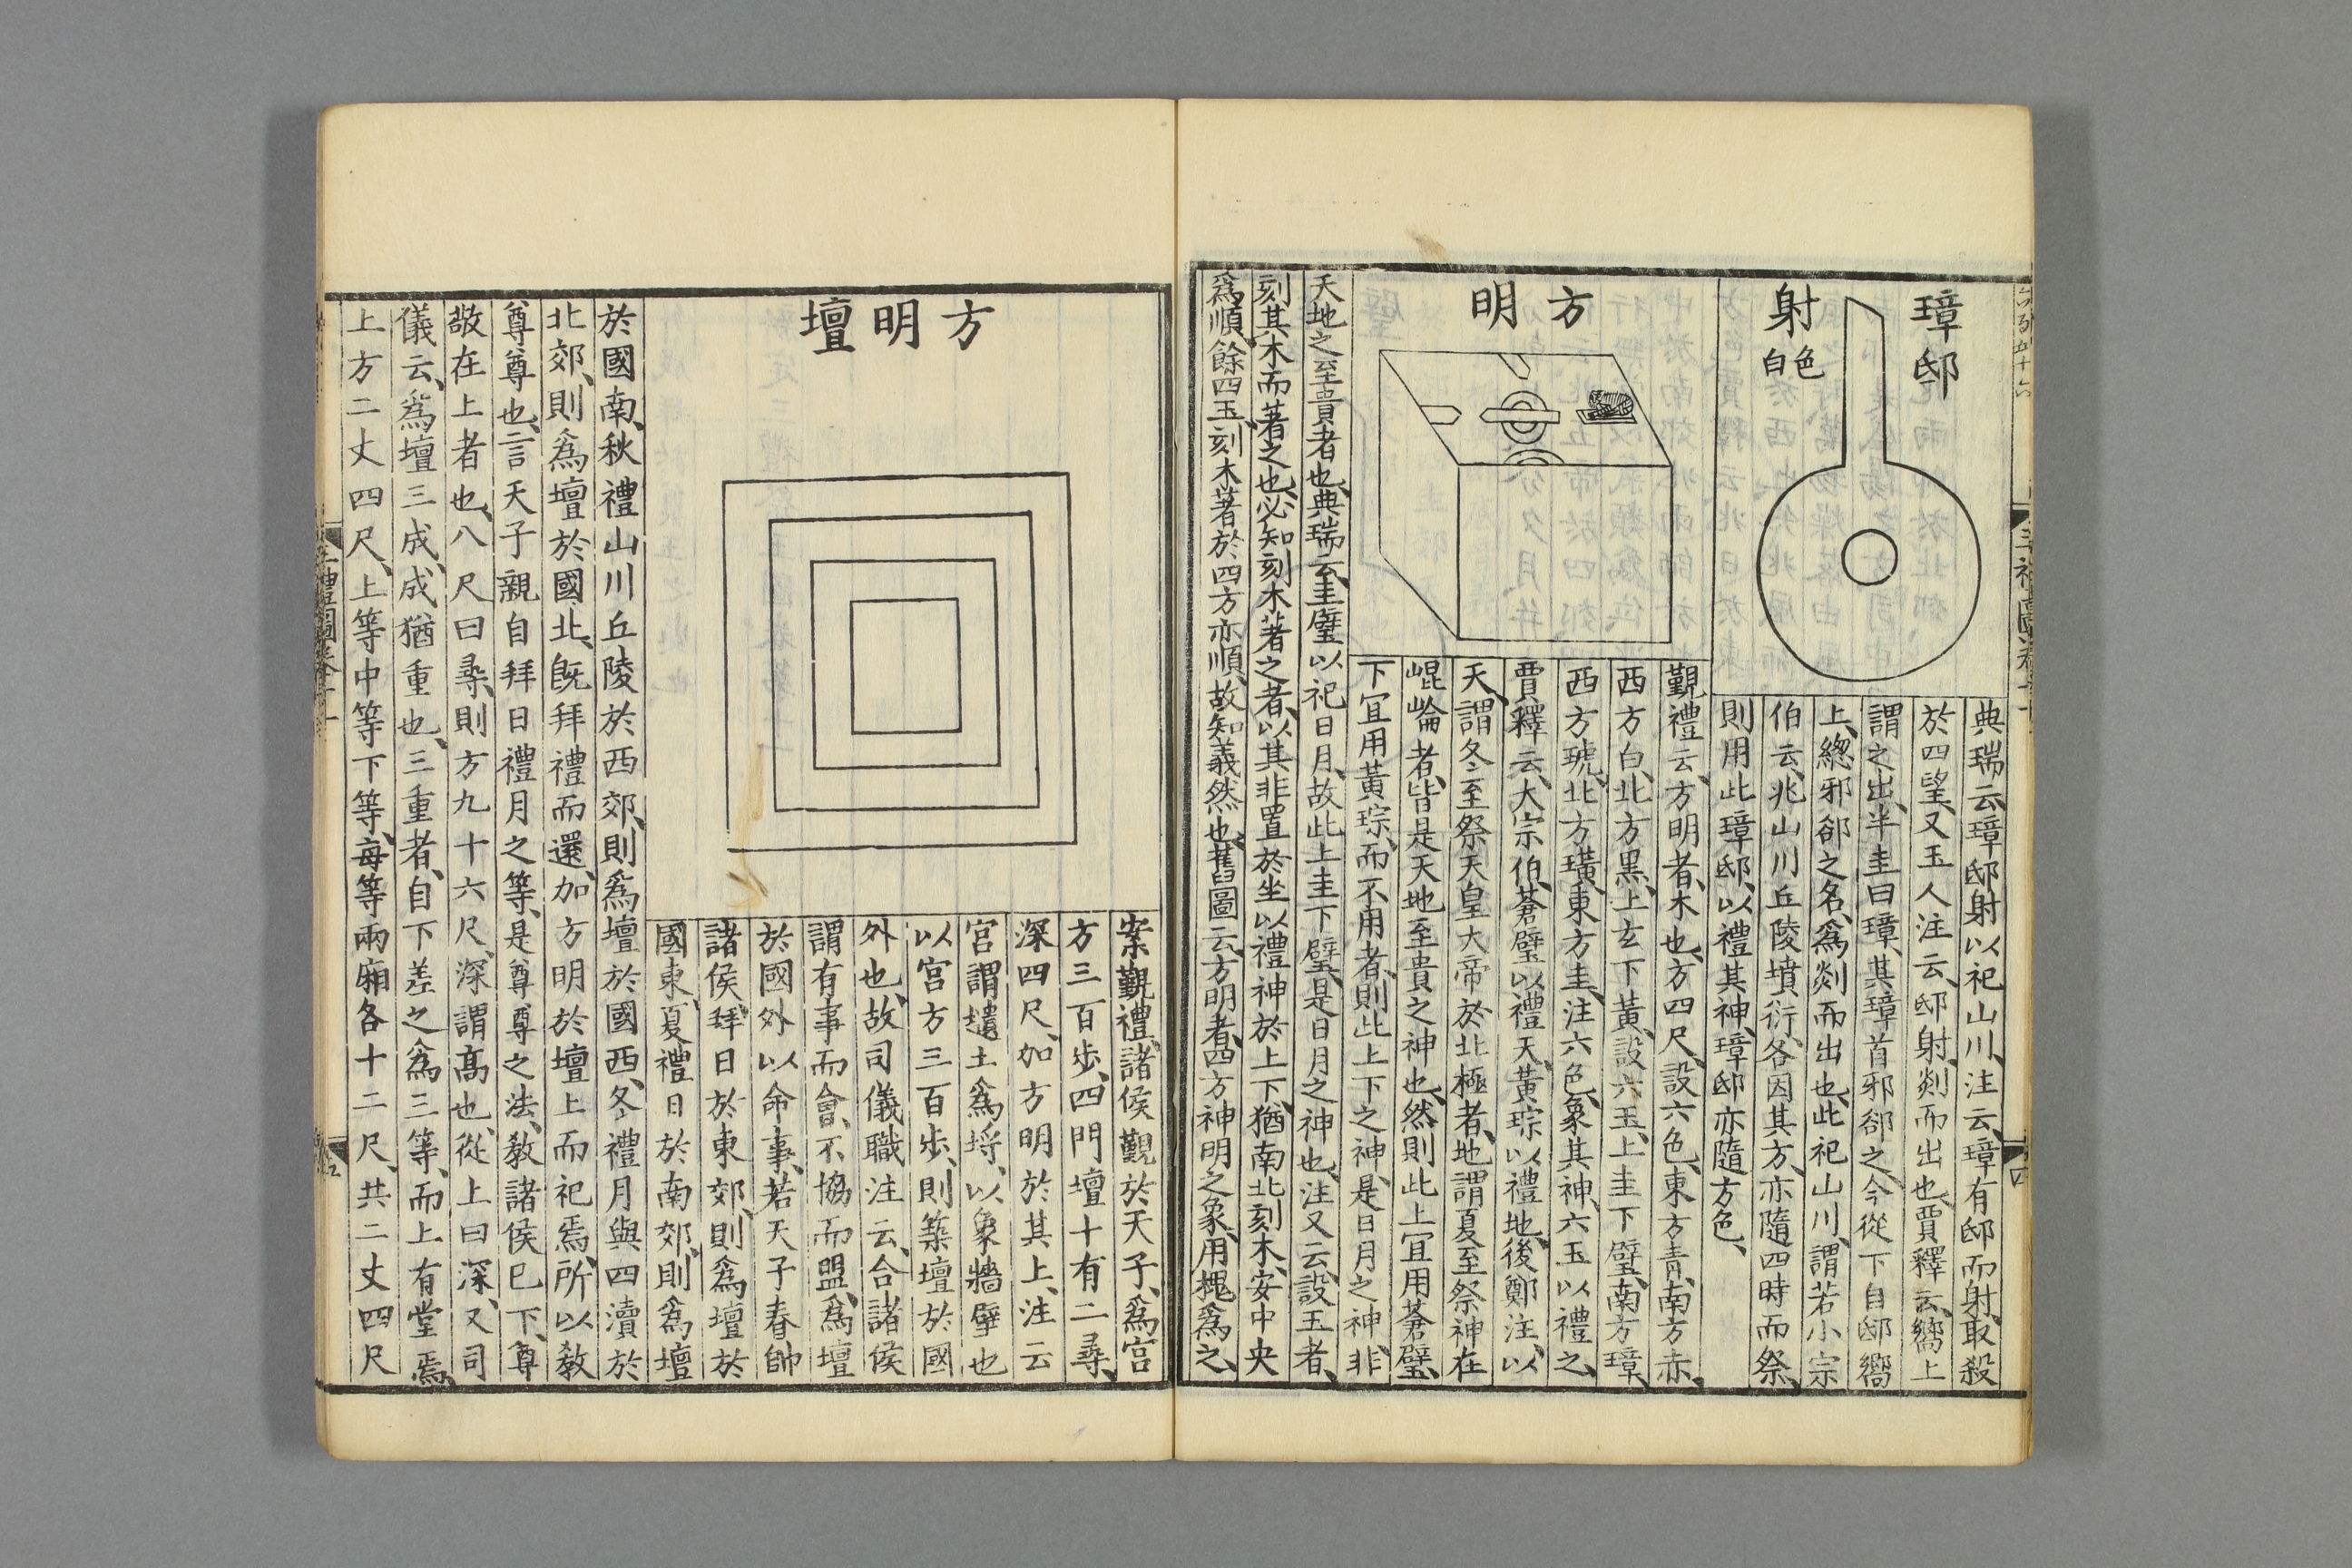 璋邸
射
白色
典瑞云璋邸射以祀山川注云璋有邸而射取殺
於四望又玉人注云邸射剡而出也賈釋云嚮上
謂之出半圭曰璋其璋首邪郤之今從下自邸嚮
上緫邪郤之名爲剡而出也此祀山川謂若小宗
伯云兆山川丘陵墳衍各因其方亦隨四時而祭
則用此璋邸以禮其神璋邸亦隨方色
方明
覲禮云方明者木也方四尺設六色東方青南方赤
西方白北方黑上玄下黃設六玉上圭下璧南方璋
西方琥北方璜東方圭注六色象其神六玉以禮之
賈釋云大宗伯蒼璧以禮天黃琮以禮地後鄭注以
天謂冬至祭天皇大帝於北極者地謂夏至祭神在
崐崘者皆是天地至貴之神也然則此上宜用蒼璧
下宜用黃琮而不用者則此上下之神是日月之神非
天地之至貴者也典瑞云圭璧以祀日月故此上圭下璧是日月之神也注又云設玉者
刻其木而著之也必知刻木著之者以其非置於坐以禮神於上下猶南北刻木安中央
爲順餘四玉刻木著於四方亦順故知義然也舊圖云方明者四方神明之象用槐爲之
三禮圖卷十一
四
方明壇
案覲禮諸侯覲於天子爲宮
方三百步四門壇十有二尋
深四尺加方明於其上注云
宮謂壝土爲埒以象牆壁也
以宮方三百步則築壇於國
外也故司儀職注云合諸侯
謂有事而會不協而盟爲壇
於國外以命事若天子春帥
諸侯拜日於東郊則爲壇於
國東夏禮日於南郊則爲壇
於國南秋禮山川丘陵於西郊則爲壇於國西冬禮月與四瀆於
北郊則爲壇於國北旣拜禮而還加方明於壇上而祀焉所以敎
尊尊也言天子親自拜日禮月之等是尊尊之法敎諸侯巳下尊
敬在上者也八尺曰尋則方九十六尺深謂高也從上曰深又司
儀云爲壇三成成猶重也三重者自下差之爲三等而上有堂焉
上方二丈四尺上等中等下等每等兩廂各十二尺共二丈四尺
三禮圖卷十一
五